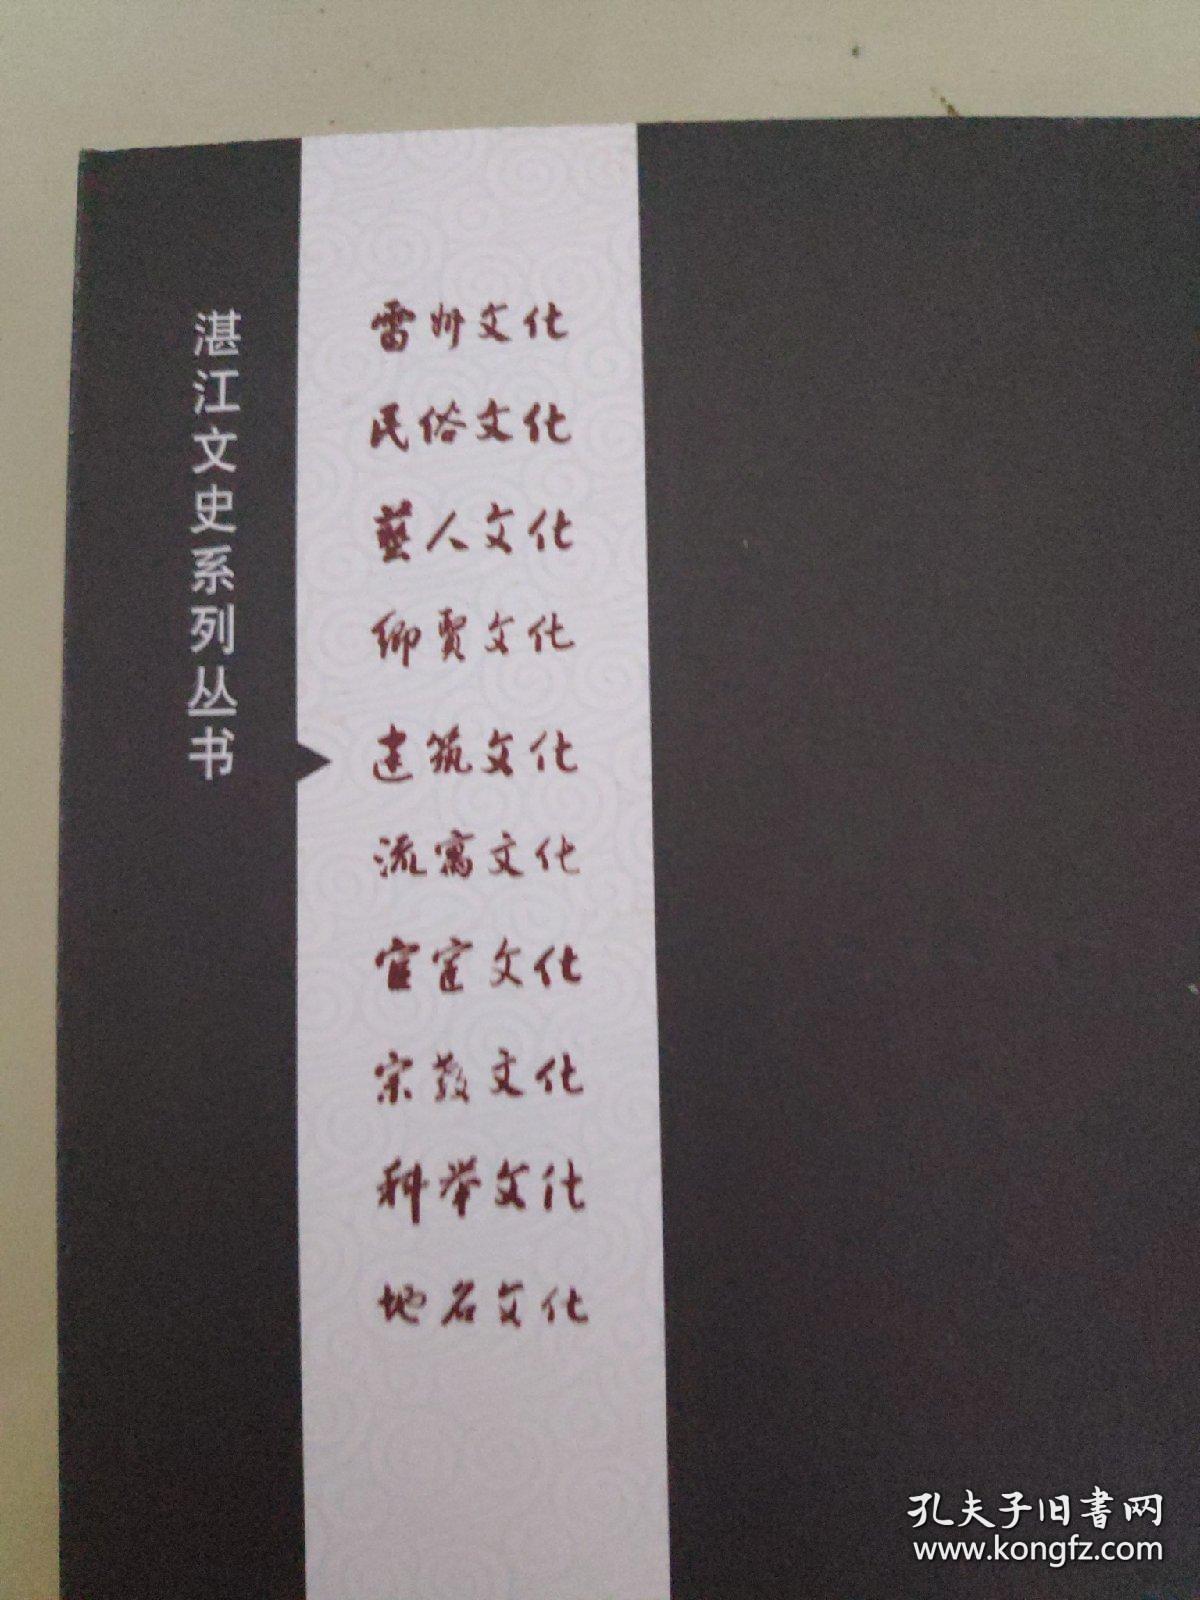 湛江文史系列丛书
雷州文化
民俗文化
藝人文化
乡贤文化
建筑文化
流寓文化
官宦文化
宗教文化
科举文化
地名文化
孔夫子旧書网
www.kongfz.com